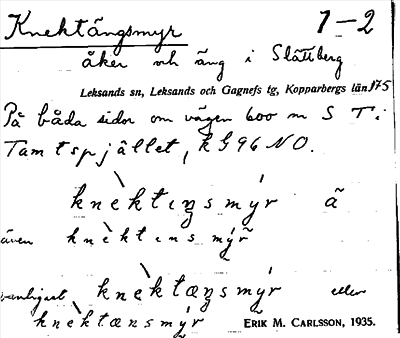 Knektängsmyr 1–2
åker och äng i Slättberg
Leksands sn, Leksands och Gagnefs tg, Kopparbergs län 175
På båda sidor om vägen 600 m S T. i
Tamtspjället, k G 96 NO.
knὲktıŋsmýr ã
även knὲktınsmýr̃
vanligast knὲktæŋsmýr eller
knὲktænsmýr ERIK M. CARLSSON, 1935.